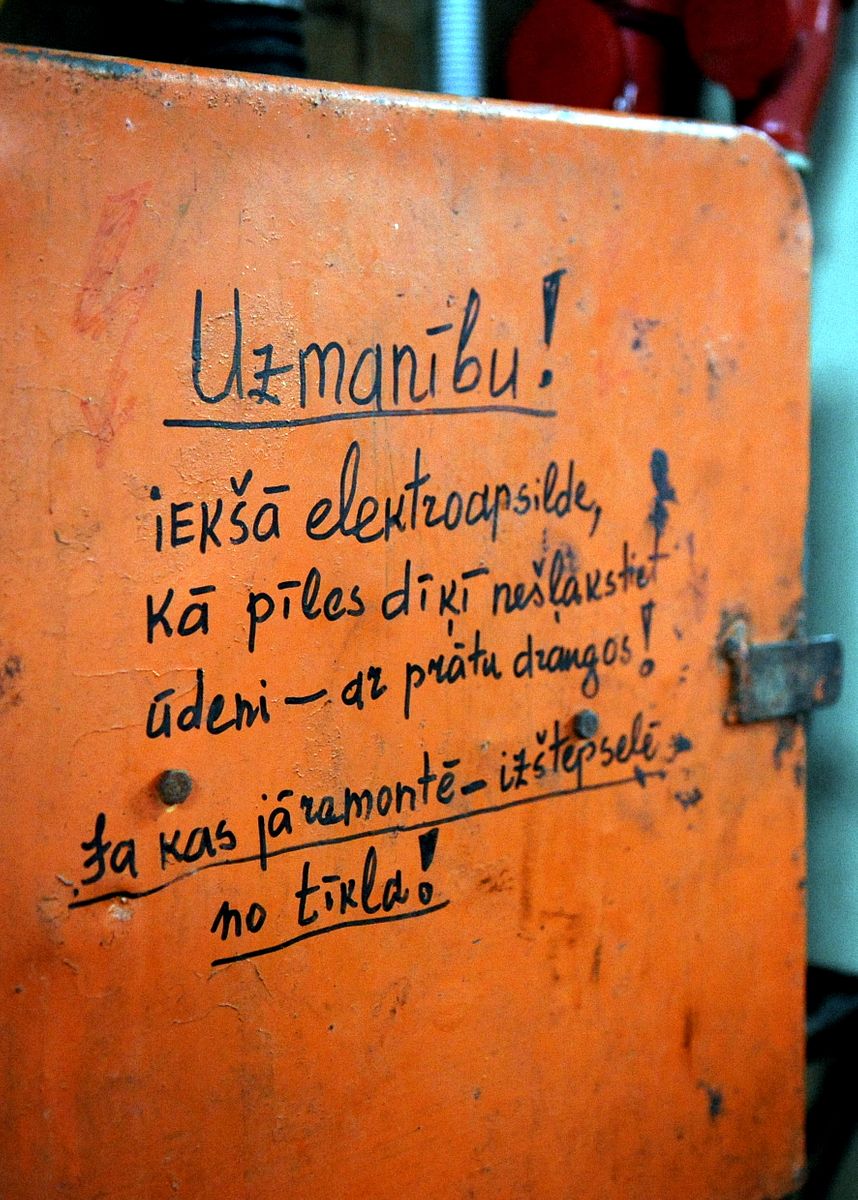 Uzmanību!
iekšā elektroapsilde,
kā pīles dīķī nešļakstiet
ūdeni — ar prātu draugos!
Ja kas jāremontē — izštepselē
no tīkla!